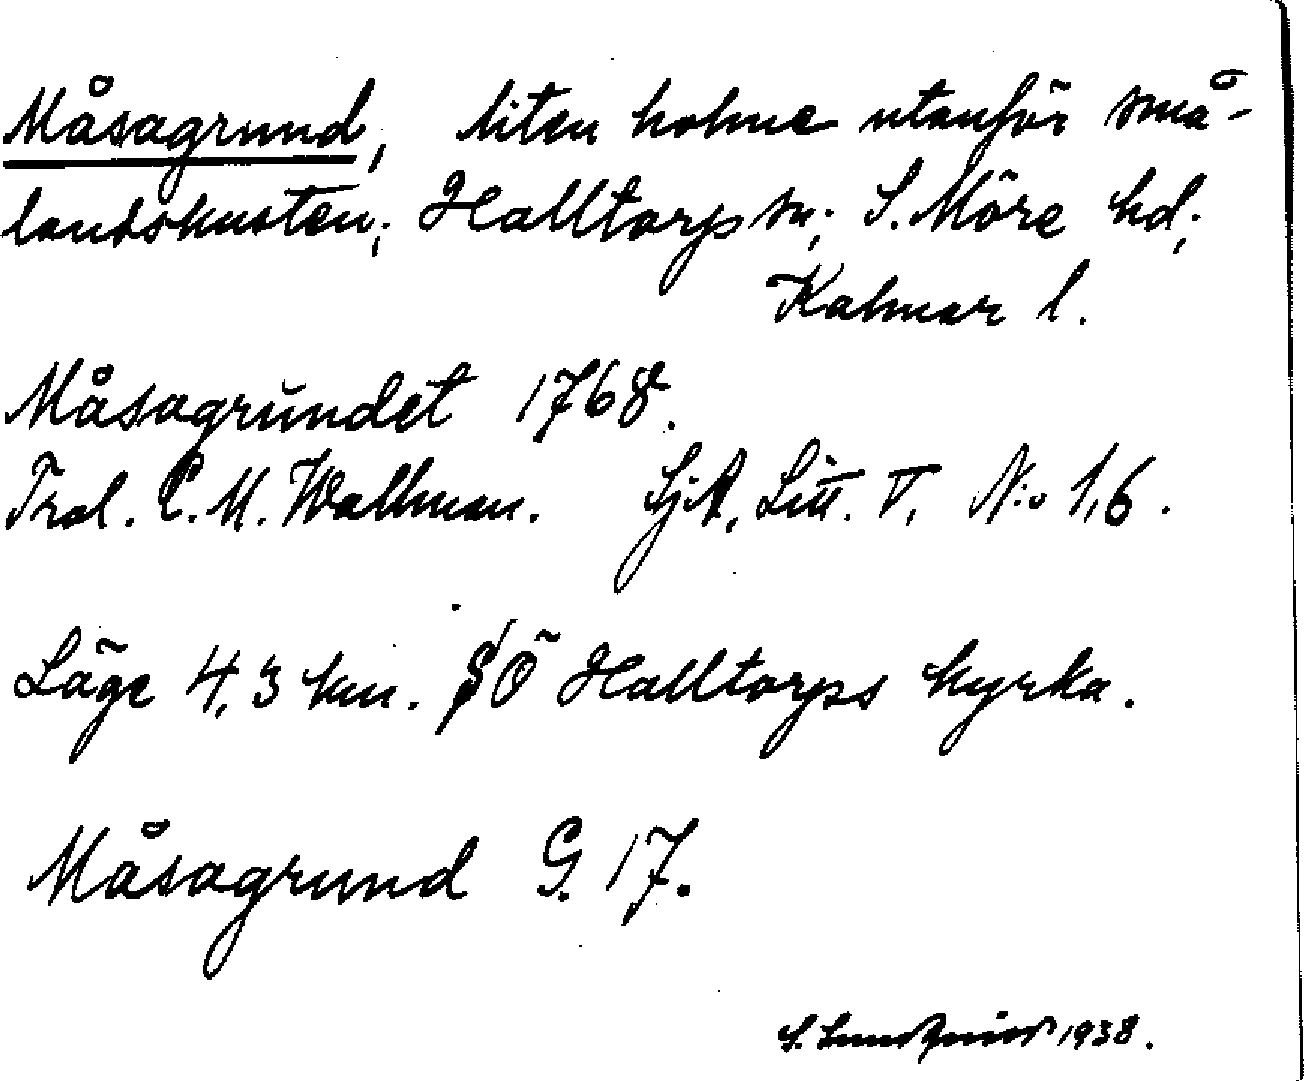 Måsagrund, liten holme utanför små-
landskusten; Halltorp sn; S. Möre hd;
Kalmar l.
Måsagrundet 1768.
Trol. C. M. Wallman. SjA, Litt. V, N:o 1,6.
Läge 4,3 km. SÖ Halltorps kyrka.
Måsagrund G. 17.
S. Lundquist 1938.